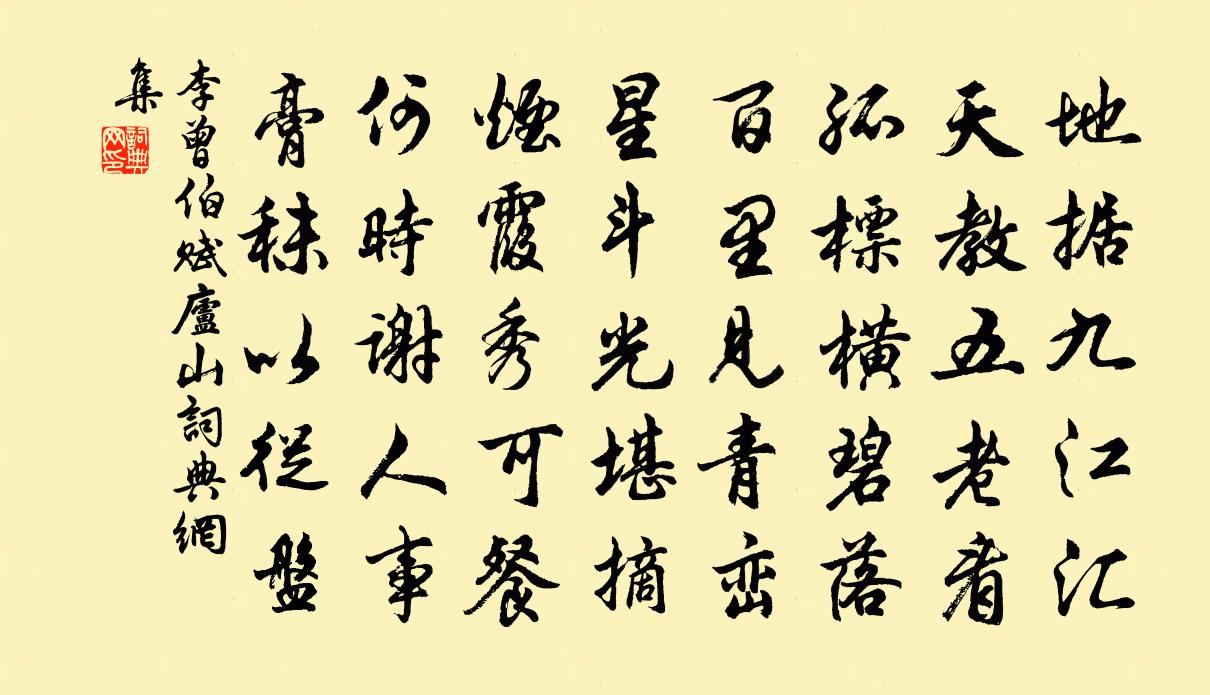 地据九江汇
天教五老看
孤標橫碧落
百里見青巒
星斗光堪摘
煙霞秀可餐
何時謝人事
膏秣以從盤
李曾伯賦廬山詞典網
集
詞典
网印